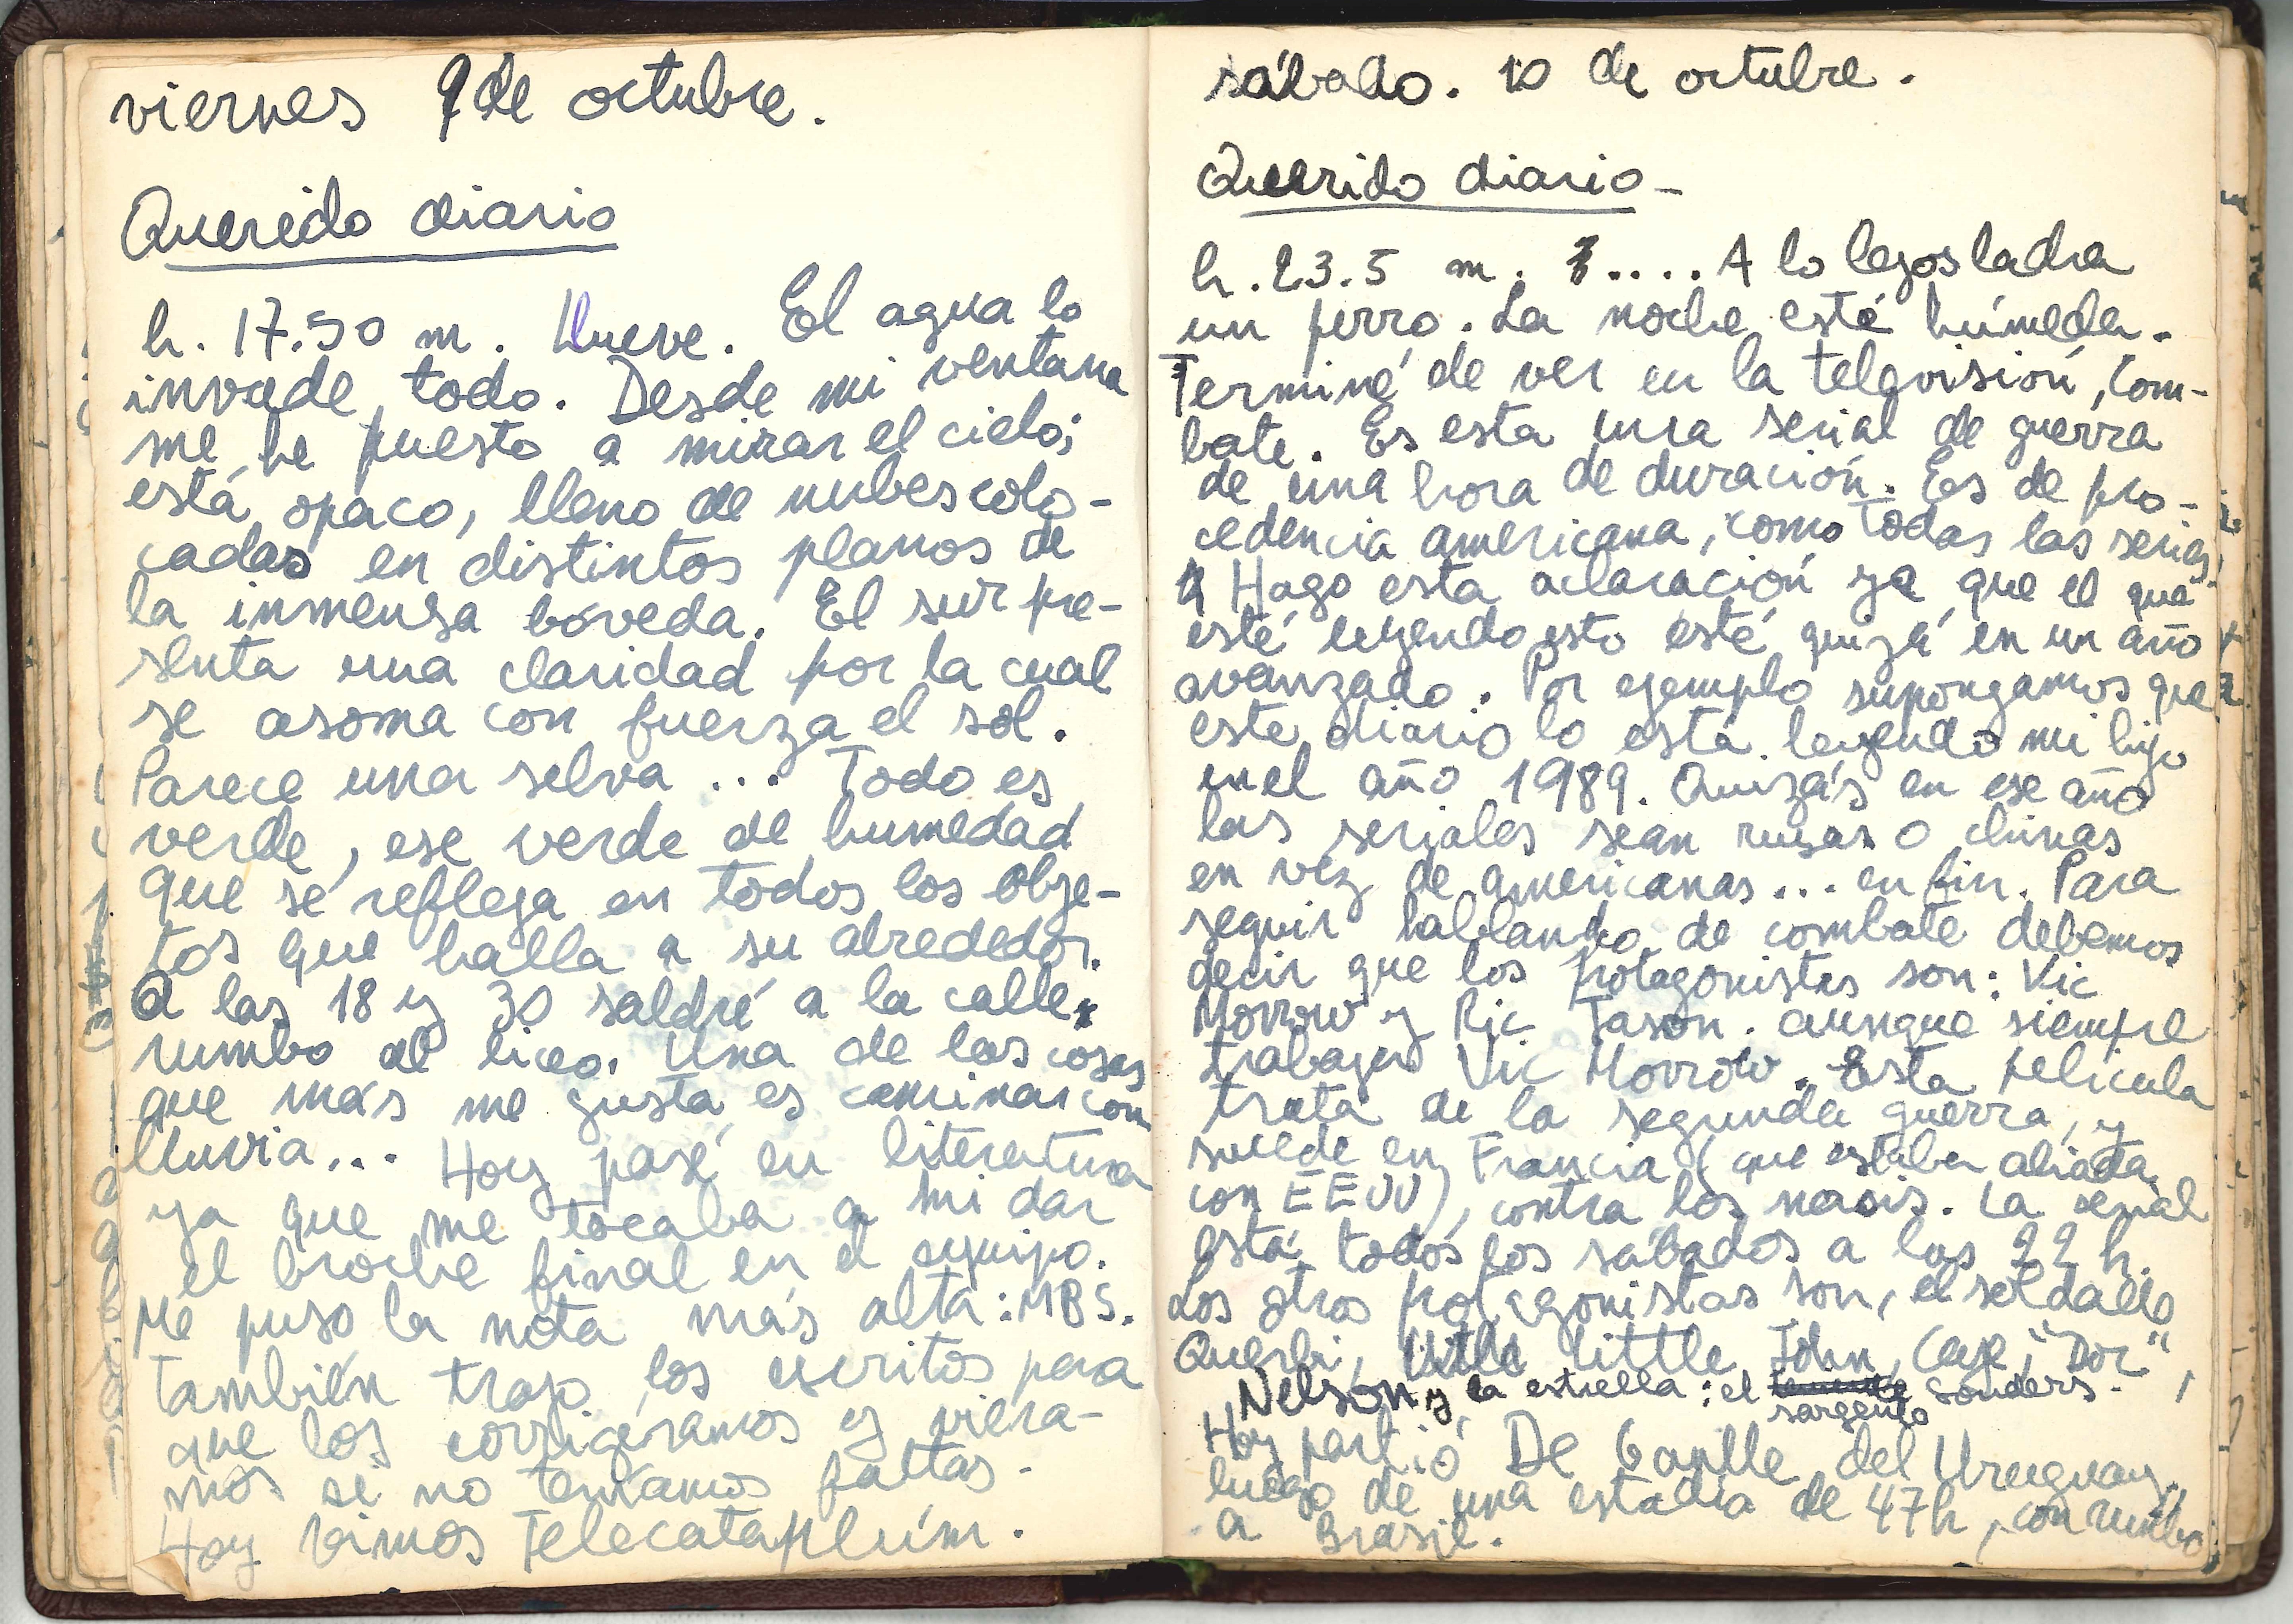 viernes 9 de octubre.
Querido diario
h. 17.50 m. Llueve. El agua lo
invade todo. Desde mi ventana
me he puesto a mirar el cielo;
está opaco, lleno de nubes colo-
cadas en distintos planos de
la inmensa bóveda. El sur pre-
senta una claridad por la cual
se asoma con fuerza el sol.
Parece una selva ... Todo es
verde, ese verde de humedad
que se refleja en todos los obje-
tos que halla a su alrededor.
A las 18 y 30 saldré a la calle
rumbo al liceo. Una de las cosas
que más me gusta es caminar con
lluvia... Hoy pasé en literatura
ya que me tocaba a mi dar
el broche final en el equipo.
Me puso la nota más alta: MBS.
También trajo los escritos para
que los corrigieramos y viera-
mos si no teníamos faltas.
Hoy vimos Telecataplúm.
sábado. 10 de octubre.
Querido diario-
h. 23.5 m. .... A lo lejos ladra
un perro. La noche está húmeda.
Terminé de ver en la televisión, Com-
bate. Es esta una serial de guerra
de una hora de duración. Es de pro-
cedencia americana, como todas las series.
Hago esta aclaración ya que el que
esté leyendo esto esté quizá en un año
avanzado. Por ejemplo supongamos que
este diario lo está leyendo mi hijo
en el año 1989. Quizás en ese año
las seriales sean rusas o chinas
en vez de americanas... en fin. Para
seguir hablando de combate debemos
decir que los protagonistas son: Vic
Morrow y Ric Jason. aunque siempre
trabaja Vic Morrow. Esta película
trata de la segunda guerra, y
sucede en Francia (que estaba aliada
con EEUU), contra los nasis. La serial
está todos los sábados a las 22 h.
Los otros protagonistas son, el soldado
Querbi, little John, Cage, "Doc",
Nelson y la estrella: el sargento Sonders.
Hoy partió De Gaulle del Uruguay,
luego de una estadía de 47h, con rumbo
a Brasil.